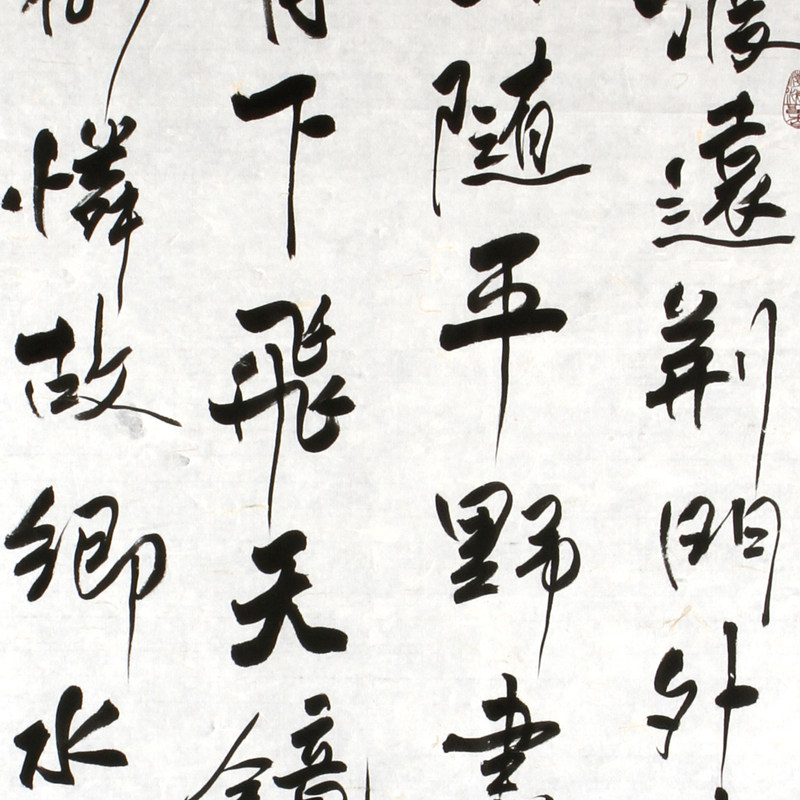 渡遠荆門外
随平野盡
月下飛天鏡
憐故鄉水